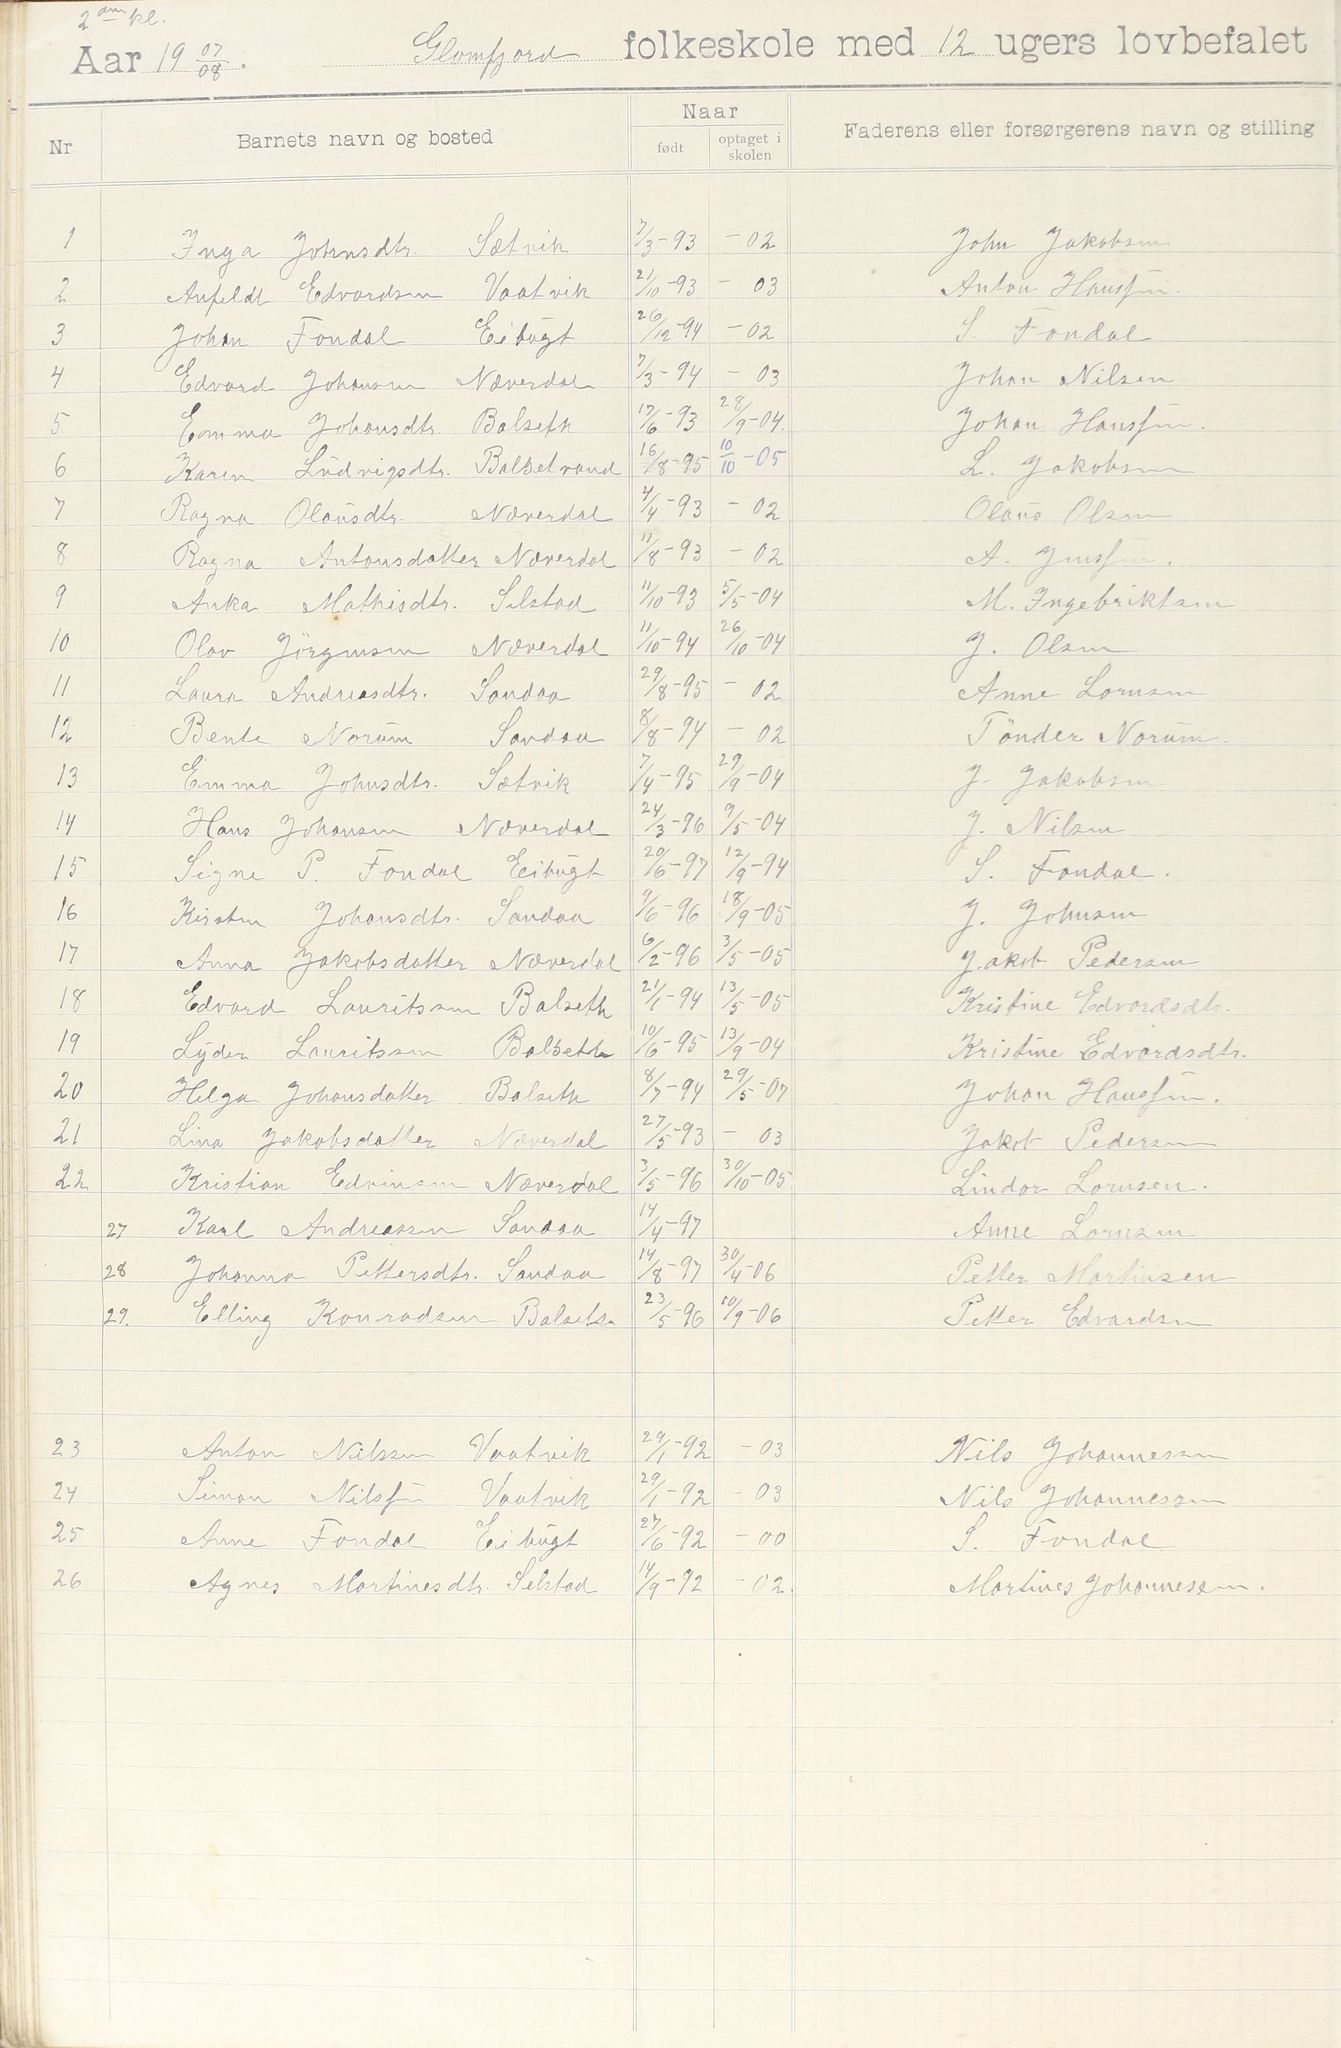 2den kl.
Aar 19 07/08. Glomfjord folkeskole med 12 ugers lovbefalet
Nr. Barnets navn og bosted Naar født optaget i skolen Faderens eller forsørgerens navn og stilling
1 Inga Johnsdtr. Sætvik 7/3-93 -02 John Jakobsen
2 Anfeldt Edvardsen Vaatvik 21/10-93 -03 Anton Hanssen.
3 Johan Fondal Eibugt 26/12-94 -02 S. Fondal
4 Edvard Johansen Næverdal 7/3-94 -03 Johan Nilsen
5 Emma Johansdtr. Balseth 17/6-93 28/9-04. Johan Hanssen.
6 Karen Ludvigsdtr. Balsetvand 16/8-95 10/10-05 L. Jakobsen
7 Ragna Olausdtr. Næverdal 4/4-93 -02 Olaus Olsen
8 Ragna Antonsdatter Næverdal 11/8-93 -02 A. Jenssen.
9 Anka Mathisdtr. Selstad 11/10-93 5/5-04 M. Ingebriktsen
10 Olav Jörgensen Næverdal 11/10-94 26/10-04 J. Olsen
11 Laura Andreasdtr. Sandaa 29/8-95 -02 Anne Lornsen
12 Bente Norum Sandaa 8/8-94 -02 Tönder Norum.
13 Emma Johnsdtr. Sætvik 7/4-95 29/9-04 J. Jakobsen
14 Hans Johansen Næverdal 24/3-96 9/5-04 J. Nilsen
15 Signe P. Fondal Eibugt 20/6-97 12/9-94 S. Fondal.
16 Kirsten Johansdtr. Sandaa 9/6-96 18/9-05 J. Johnsen
17 Anna Jakobsdatter Næverdal 6/2-96 3/5-05 Jakob Pedersen
18 Edvard Lauritsen Balseth 21/1-94 13/5-05 Kristine Edvardsdtr.
19 Lyder Lauritsen Balseth 10/6-95 13/9-04 Kristine Edvardsdtr.
20 Helga Johansdatter Balseth 8/7-94 29/5-07 Johan Hanssen.
21 Lina Jakobsdatter Næverdal 27/5-93 -03 Jakob Pedersen
22 Kristian Edvinsen Næverdal 3/5-96 30/10-05 Lindor Lornsen.
27 Karl Andreassen Sandaa 14/4-97 Anne Lornsen
28 Johanna Pettersdtr. Sandaa 14/8-97 30/4-06 Petter Martinsen
29. Elling Konradsen Balseth 23/5-96 10/9-06 Petter Edvardsen
23 Anton Nilssen Vaatvik 29/1-92 -03 Nils Johannessen
24 Simon Nilssen Vaatvik 29/1-92 -03 Nils Johannessen
25 Anne Fondal Eibugt 27/6-92 -00 S. Fondal
26 Agnes Martinesdtr. Selstad 14/9-92 -02. Martines Johannessen.